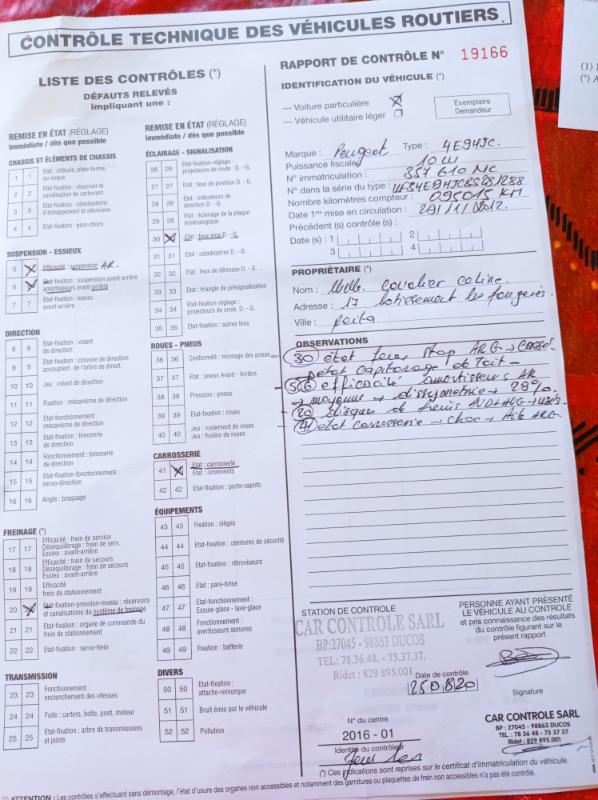 CONTRÔLE TECHNIQUE DES VÉHICULES ROUTIERS
LISTE DES CONTRÔLES (*)
DÉFAUTS RELEVÉS
impliquant une :
REMISE EN ÉTAT (RÉGLAGE)
immédiate / dès que possible
CHASSIS ET ÉLÉMENTS DE CHASSIS
1 1 Etat : châssis, plate-forme ou coque
2 2 Etat-fixation : réservoir et canalisation de carburant
3 3 Etat-fixation : canalisations d'échappement et silencieux
4 4 Etat-fixation : pare-chocs
SUSPENSION - ESSIEUX
5 Efficacité : suspension AR.
6 Etat-fixation : suspension avant-arrière amortisseurs avant-arrière
7 7 Etat-fixation : essieu avant-arrière
DIRECTION
8 8 Etat-fixation : volant de direction
9 9 Etat-fixation : colonne de direction accouplem. de l'arbre de direct.
10 10 Jeu : volant de direction
11 11 Fixation : mécanisme de direction
12 12 Etat-fonctionnement : mécanisme de direction
13 13 Etat-fixation : timonerie de direction
14 14 Fonctionnement : timonerie de direction
15 15 Etat-fixation-fonctionnement : servo-direction
16 16 Angle : braquage
FREINAGE (*)
17 17 Efficacité : frein de service
Déséquilibrage : frein de serv.
Essieu : avant-arrière
18 18 Efficacité : frein de secours
Déséquilibrage : frein de secours
Essieu : avant-arrière
19 19 Efficacité frein de stationnement
20 Etat-fixation-pression-niveau : réservoire et canalisations du système de freinage
21 21 Etat-fixation : organe de commande du frein de stationnement
22 22 Etat-fixation : servo-frein
TRANSMISSION
23 23 Fonctionnement : enclenchement des vitesses
24 24 Fuite : carters, boîte, pont, moteur
25 25 Etat-fixation : arbre de transmissions et joints
REMISE EN ÉTAT (RÉGLAGE)
immédiate / dès que possible
ÉCLAIRAGE - SIGNALISATION
26 26 Etat-fixation-réglage : projecteurs de route : D. - G.
27 27 Etat : feux de position D. - G.
28 28 Etat : indicateurs de direction D. - G.
29 29 Etat : éclairage de la plaque minéralogique
30 Etat : feux stop D. - G.
31 31 Etat : catadioptres D. - G.
32 32 Etat : feux de détresse D. - G.
33 33 Etat : triangle de présignalisation
34 34 Etat-fixation-réglage : projecteurs de croix. D. - G.
35 35 Etat-fixation : autres feux
ROUES - PNEUS
36 36 Conformité : montage des pneus
37 37 Etat : pneus Avant - Arrière
38 38 Pression : pneus
39 39 Etat-fixation : roues
40 40 Jeu : roulement de roues
Jeu : fusées de roues
CARROSSERIE
41 Etat : carrosserie
Etat : ornements
42 42 Etat-fixation : porte-capots
ÉQUIPEMENTS
43 43 Fixation : sièges
44 44 Etat-fixation : ceintures de sécurité
45 45 Etat-fixation : rétroviseurs
46 46 Etat : pare-brise
47 47 Etat-fonctionnement : Essuie-glace - lave-glace
48 48 Fonctionnement : avertisseurs sonores
49 49 Fixation : batterie
DIVERS
50 50 Etat-fixation : attache-remorque
51 51 Bruit émis par le véhicule
52 52 Pollution
RAPPORT DE CONTRÔLE N° 19166
IDENTIFICATION DU VÉHICULE (*)
— Voiture particulière
— Véhicule utilitaire léger
Exemplaire Demandeur
Marque : Peugeot Type : 4E94JC.
Puissance fiscale : 10 CV
N° immatriculation : 357 610 NC
N° dans la série du type :
Nombre kilomètres compteur : 095015 KM
Date 1ère mise en circulation : 29/11/2012.
Précédent (s) contrôle (s) :
Date (s) : 1 2
3 4
PROPRIÉTAIRE (*)
Nom : Melle. Cavalier Celine.
Adresse : 17 lotissement les fougères
Ville : païta
OBSERVATIONS
30 état feux stop ARG → cassé
état capitonage de toit
5/6 efficacité amortisseurs AR
moyenne → dissymétrie → 29%.
20 disques de freins AVD+AVG → usés.
41 état carrosserie → choc → Aile ARG.
STATION DE CONTROLE
CAR CONTROLE SARL
BP:27045 - 98863 DUCOS
TEL: 78.36.48. - 75.37.37.
Ridet : 829 895.001
PERSONNE AYANT PRÉSENTÉ
LE VÉHICULE AU CONTROLE
et pris connaissance des résultats
du contrôle figurant sur le
présent rapport
Date de contrôle
250820
Signature
N° du centre
2016 - 01
Identité du contrôleur
CAR CONTROLE SARL
BP : 27045 - 98863 DUCOS
TEL : 78 36 48 - 75 37 37
Ridet : 829 895.001
(*) Ces indications sont reprises sur le certificat d'immatriculation du véhicule.
(*) ATTENTION : Les contrôles s'effectuant sans démontage, l'état d'usure des organes non accessibles et notamment des garnitures ou plaquettes de frein non accessibles n'a pas été contrôlé.